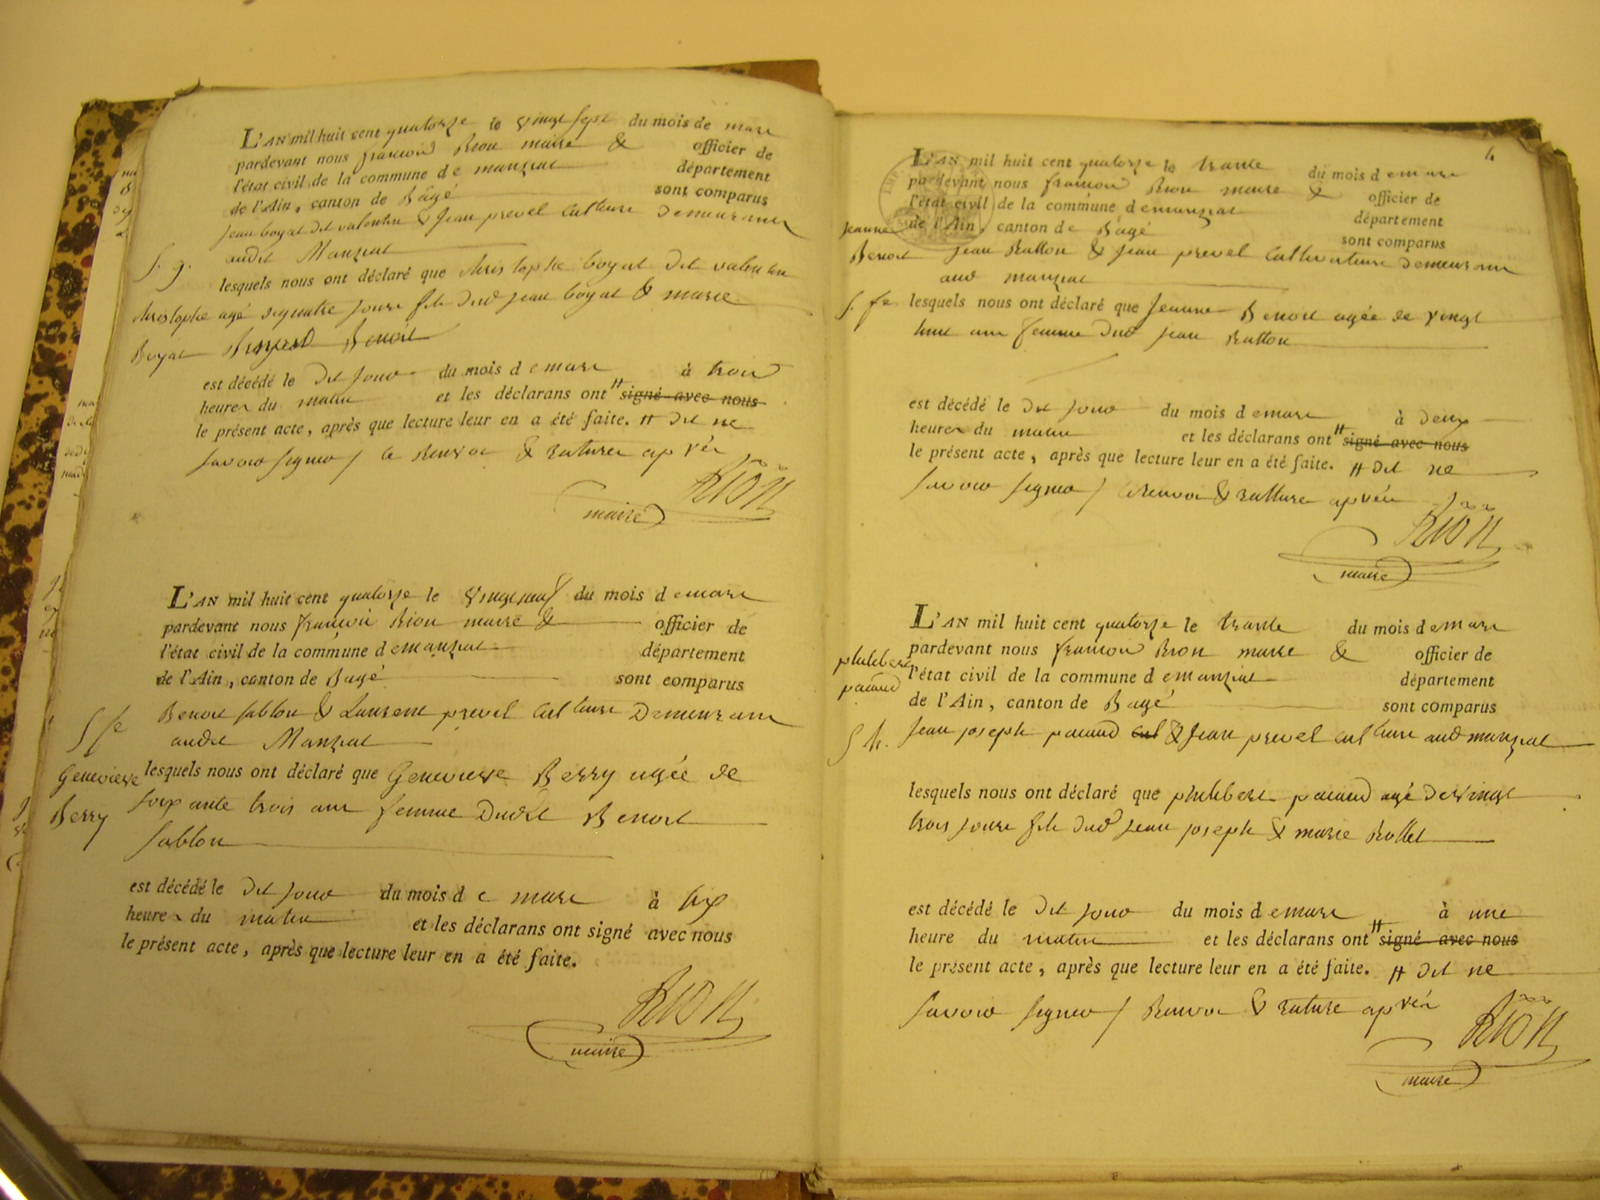 L'AN mil huit cent quatorze le vingt sept du mois de mars
pardevant nous françois Rion maire & officier de
l'état civil de la commune de manziat département
de l'Ain, canton de Bâgé sont comparus
Jean boyat dit valentin & Jean prevel culteurs demeurans
audit Manziat
S. g.
lesquels nous ont déclaré que christophe boyat dit valentin
christophe
agé de quatre jours fils dud jean boyat & marie
Boyat
Benoit
est décédé le dit jour du mois de mars à trois
heures du matin et les déclarans ont signé avec nous
le présent acte, après que lecture leur en a été faite. # dit ne
savoir signer / le Renvoi & ratures apvés
RION
maire
L'AN mil huit cent quatorze le vingt neuf du mois de mars
pardevant nous françois Rion maire & officier de
l'état civil de la commune de manziat département
de l'Ain, canton de Bagé sont comparus
Benoit sablon & Laurent prevel culteurs Demeurans
audit Manziat
S fe
Genevieve
lesquels nous ont déclaré que Genevieve Berry agée de
Berry
soixante trois ans femme Dudit Benoit
sablon
est décédé le dit jour du mois de mars à six
heures du matin et les déclarans ont signé avec nous
le présent acte, après que lecture leur en a été faite.
RION
maire
4
L'AN mil huit cent quatorze le trente du mois de mars
pardevant nous françois Rion maire & officier de
l'état civil de la commune de manziat département
de l'Ain, canton de Bagé sont comparus
Jeanne
Benoit
jean Ratton & Jean prevel cultivateurs demeurans
aud manziat
S. fe
lesquels nous ont déclaré que Jeanne Benoit agée de vingt
huit ans femme dud jean Ratton
est décédé le dit jour du mois de mars à deux
heures du matin et les déclarans ont # signé avec nous
le présent acte, après que lecture leur en a été faite. # dit ne
savoir signer / Renvoi & ratture apvés
RION
maire
L'AN mil huit cent quatorze le trente du mois de mars
pardevant nous françois Rion maire & officier de
philibert
l'état civil de la commune de manziat département
pacaud
de l'Ain, canton de Bagé sont comparus
S h.
Jean joseph pacaud cul & Jean prevel culteurs aud manziat
lesquels nous ont déclaré que philibert pacaud agé de vingt
trois jours fils dud jean joseph & marie Rollet
est décédé le dit jour du mois de mars à une
heure du matin et les déclarans ont # signé avec nous
le présent acte, après que lecture leur en a été faite. # dit ne
savoir signer / Renvoi & rature apvés
RION
maire